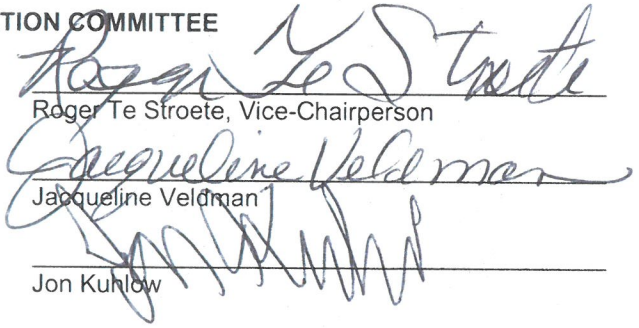 TION COMMITTEE
Roger Te Stroete
Roger Te Stroete, Vice-Chairperson
Jacqueline Veldman
Jacqueline Veldman
Jon Kuhlow
Jon Kuhlow